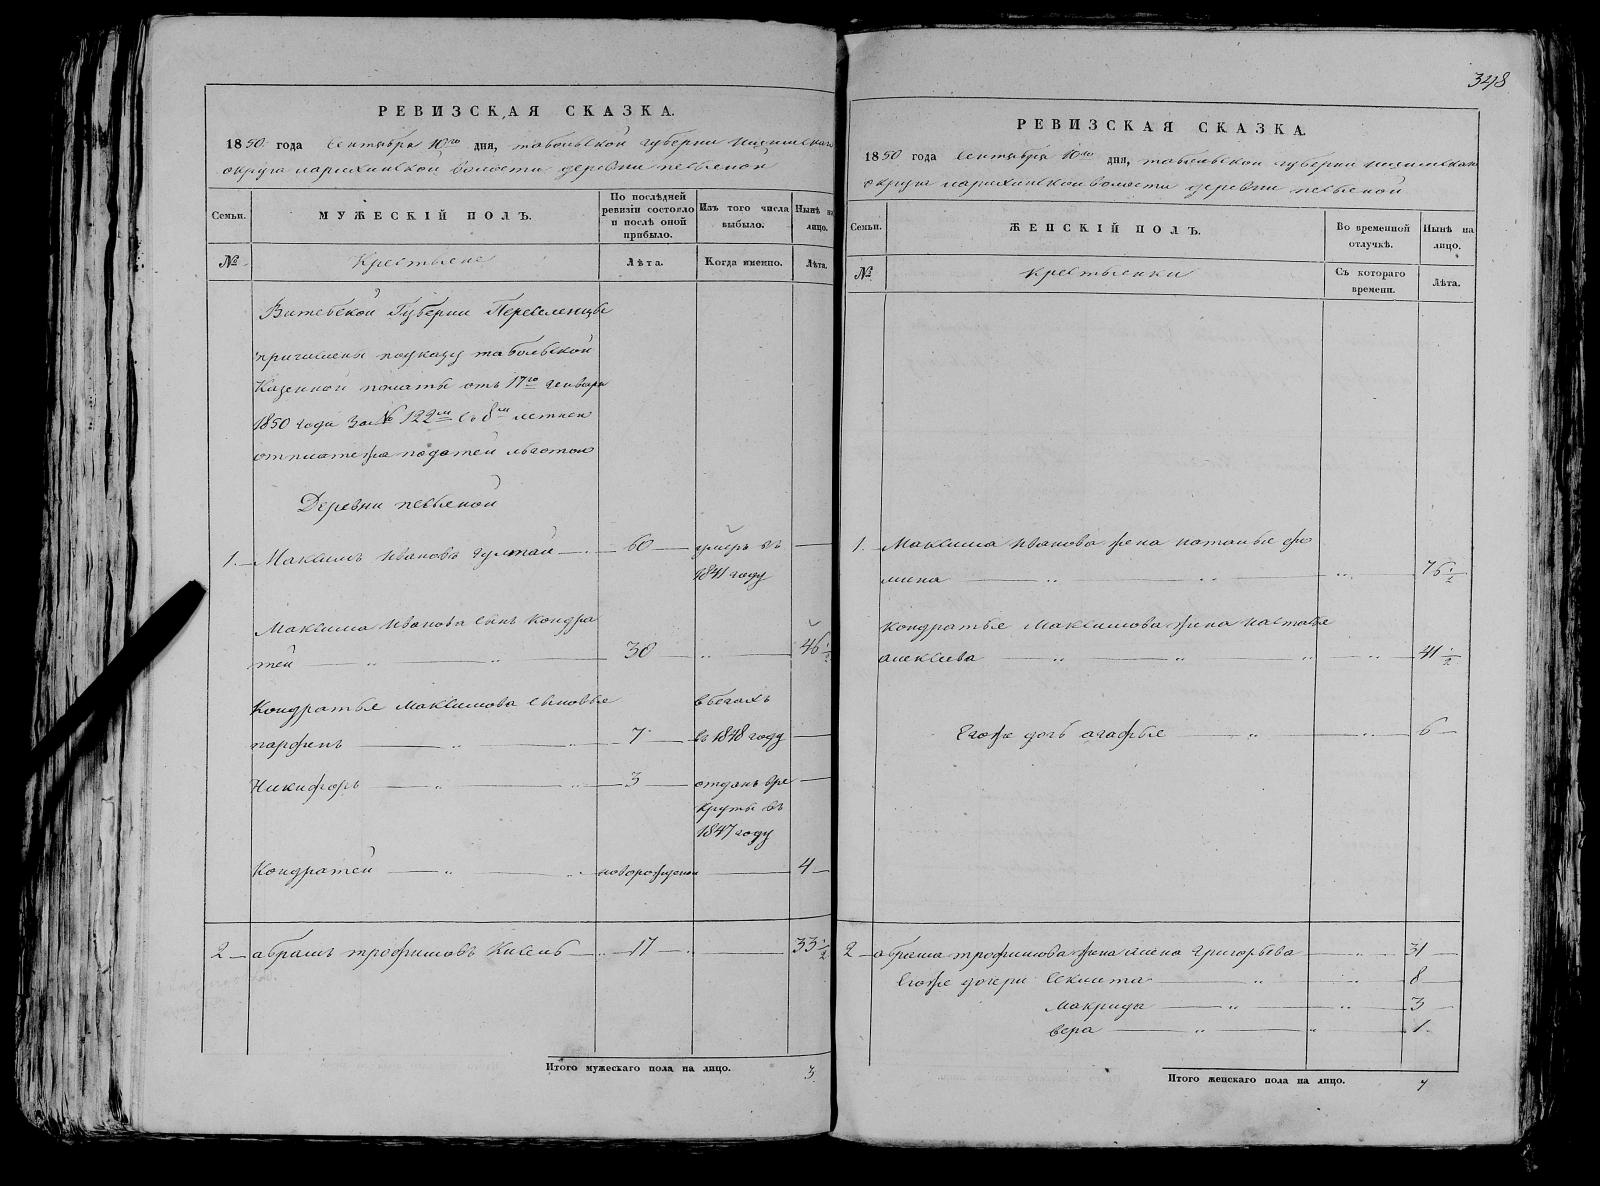 РЕВИЗСКАЯ СКАЗКА.
1850 года Сентября 10го дня, табольской губернии ишимскаго
округа ларихинской волости деревни песьеной
Семьи.
МУЖЕСКІЙ ПОЛЪ.
По послѣдней ревизіи состояло и послѣ оной прибыло.
Изъ того числа выбыло.
Нынѣ на лицо.
№
Крестьяне
Лѣта.
Когда именно.
Лѣта.
Витебской Губернии Переселенцы
причислены поуказу табольской
Казенной полаты отъ 17го генваря
1850 года за № 122м съ 8ми летнею
отплатежа податей льготою
Деревни песьеной
1. Максимъ Ивановъ 60 умеръ въ
1841 году
Максима Иванова сынъ Кондра
тей 30 46 1/2
Кондратья Максимова сыновья вбегахъ
парфенъ 7 въ 1848 году
Никифоръ 3 отданъ вре
круты въ
1847 году
Кондратей новорожденой 4
2 абрамъ трофимовъ 17 33 1/2
Итого мужескаго пола на лицо. 3
348
РЕВИЗСКАЯ СКАЗКА.
1850 года Сентября 10го дня, табольской губернии ишимскаго
округа ларихинской волости деревни песьеной
Семьи.
ЖЕНСКІЙ ПОЛЪ.
Во временной отлучкѣ.
Нынѣ на лицо.
№
крестьянки
Съ котораго времени.
Лѣта.
1. Максима Иванова жена наталья фо
мина 76 1/2
Кондратья Максимова жена настасья
алексеева 41 1/2
Егоже дочь агафья 6
2 абрама трофимова жена алена григорьева 31
Егоже дочери 8
Макрида 3
вера 1
Итого женскаго пола на лицо. 7